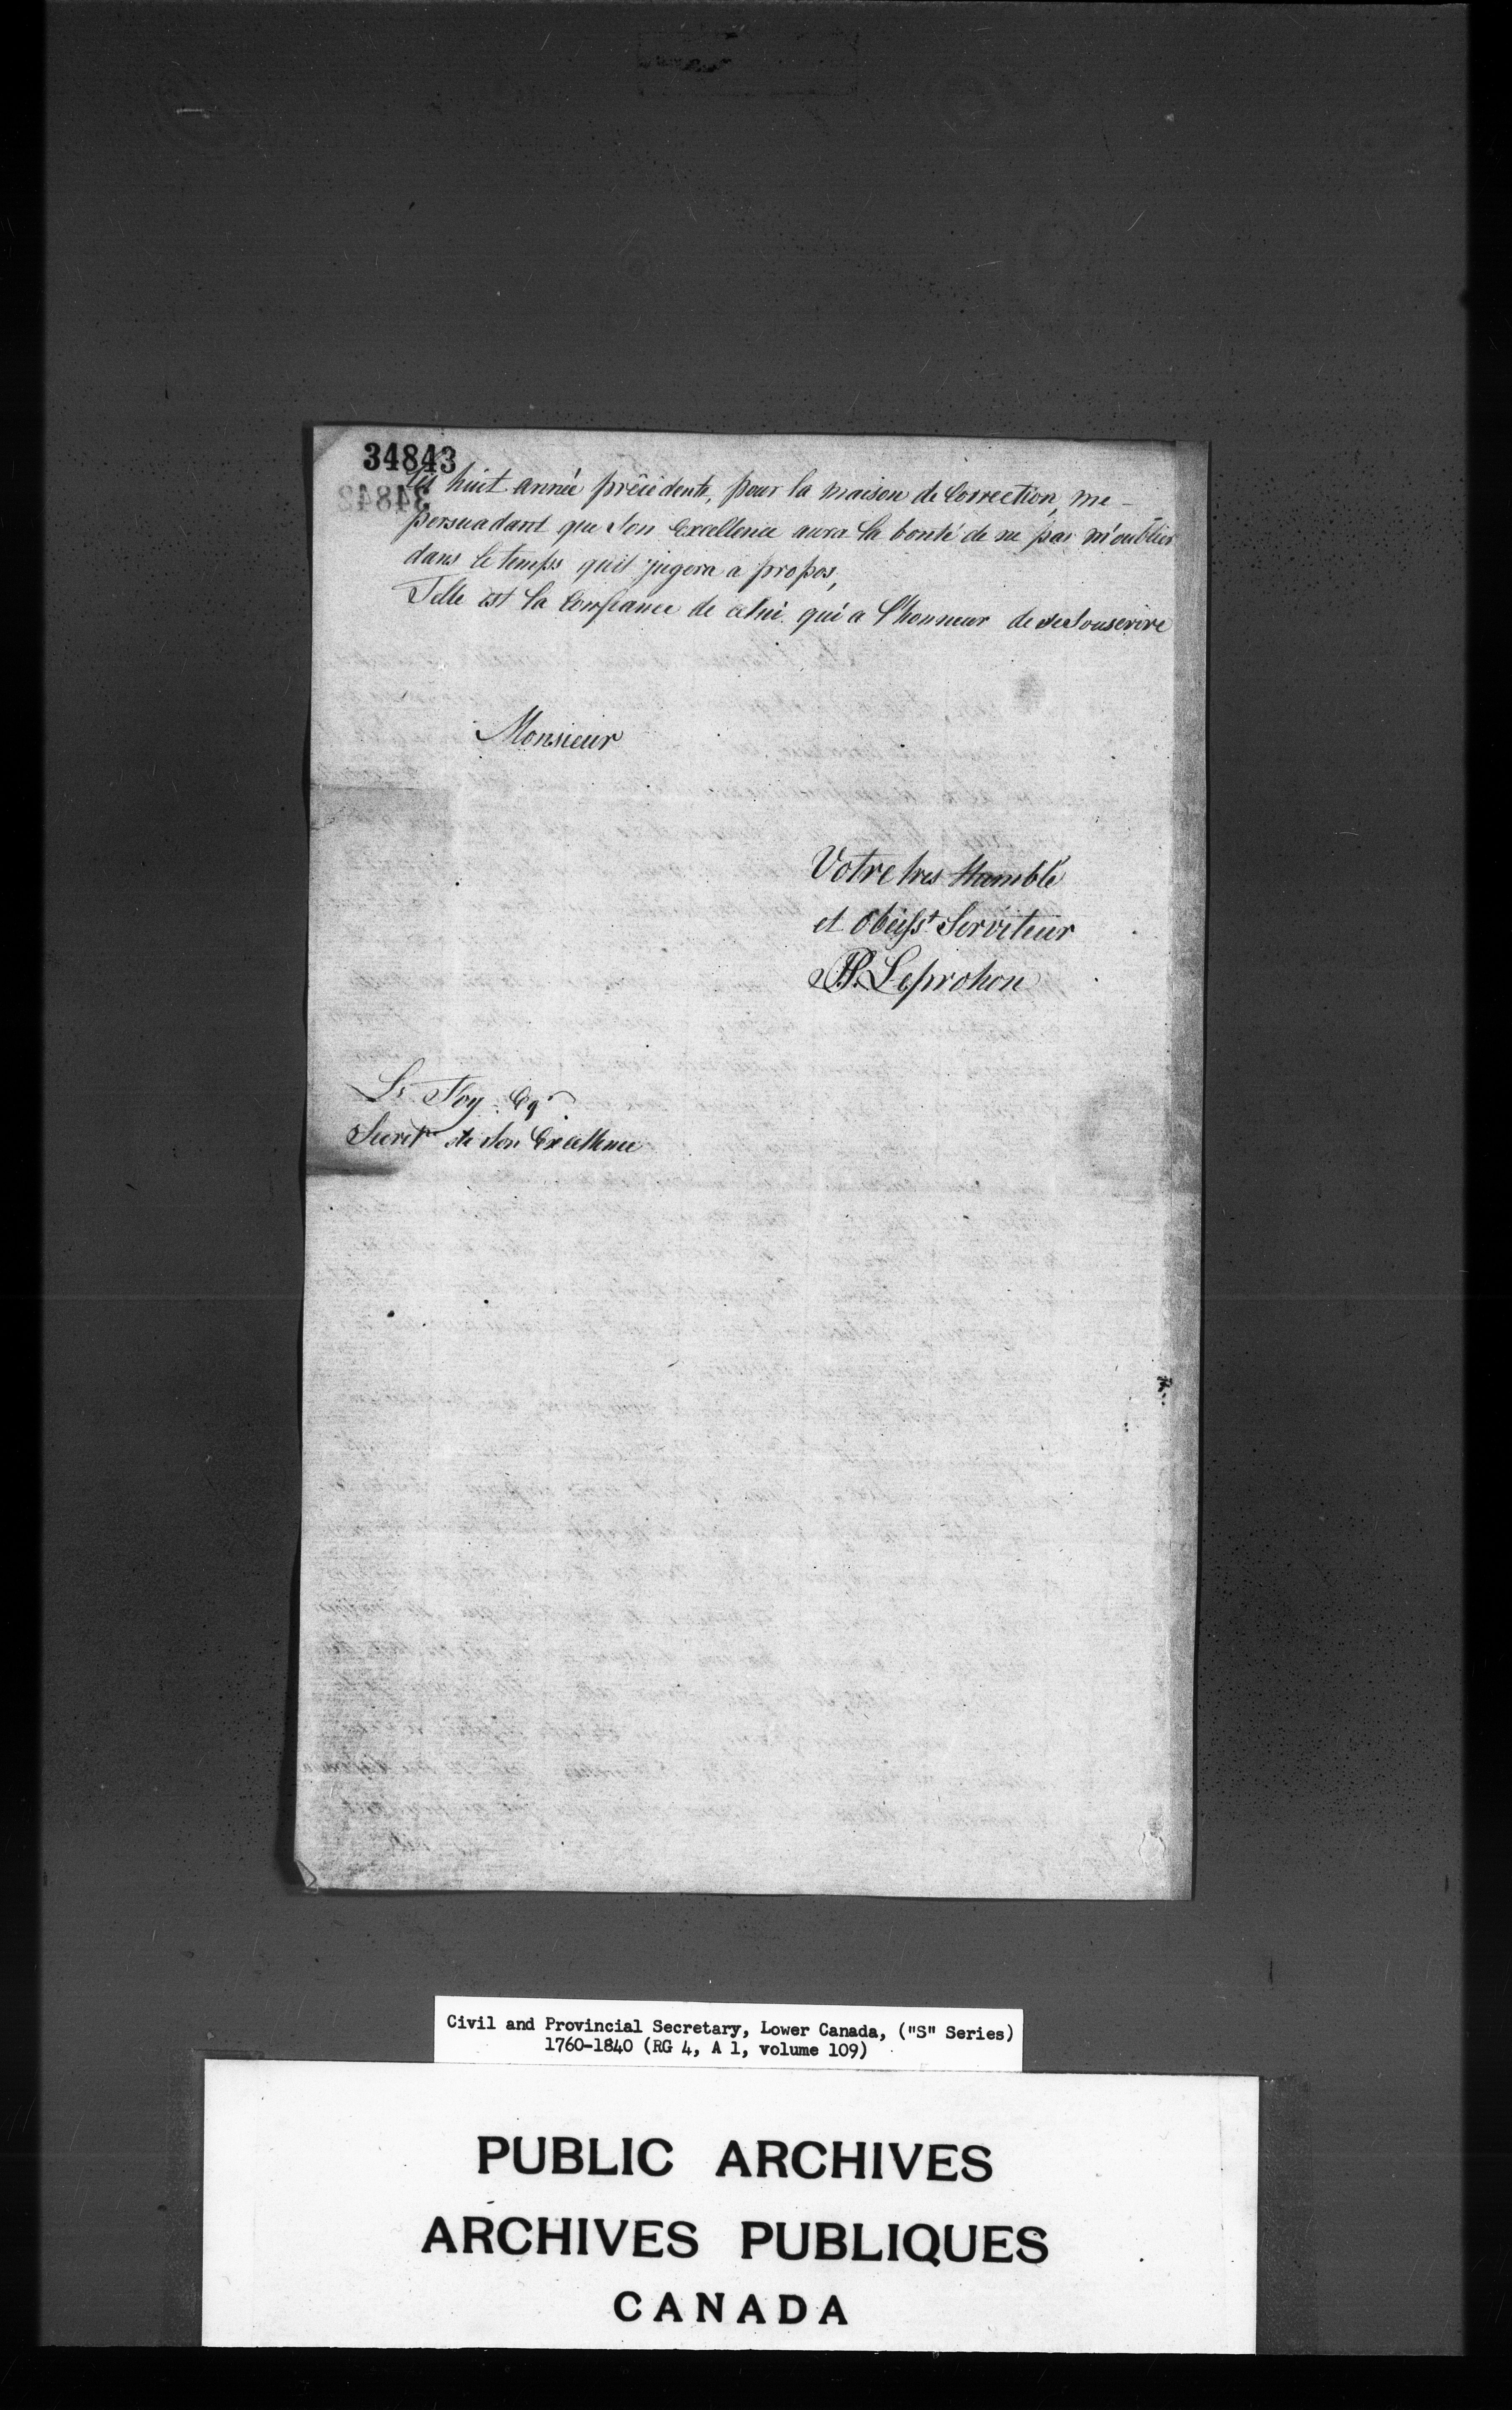 34843
les huit année précédente, pour la maison de Correction, me -
persuadant que Son Excellence aura la bonté de ne pas m'oublier
dans le temps qu'il jugera a propos,
Telle est la Confiance de celui qui a l'honneur de se Souscrire
Monsieur
Votre tres Humble
et Obéisst Serviteur
Leprohon
Ls Foy Eqr
Secret de Son Excellence
Civil and Provincial Secretary, Lower Canada, ("S" Series)
1760-1840 (RG 4, A 1, volume 109)
PUBLIC ARCHIVES
ARCHIVES PUBLIQUES
CANADA